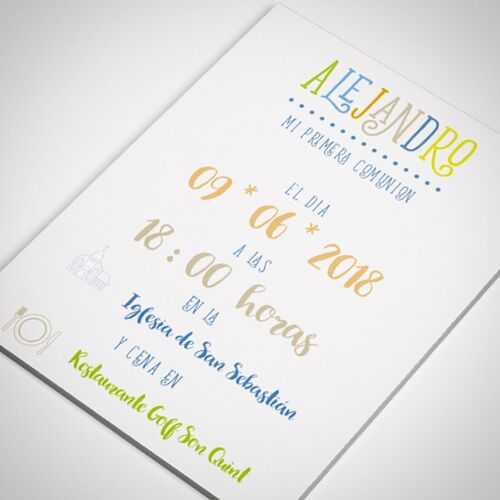 ALEJANDRO
MI PRIMERA COMUNION
EL DIA
09 * 06 * 2018
A LAS
18:00 horas
EN LA
Iglesia de San Sebastián
Y CENA EN
Restaurante Golf Son Quint